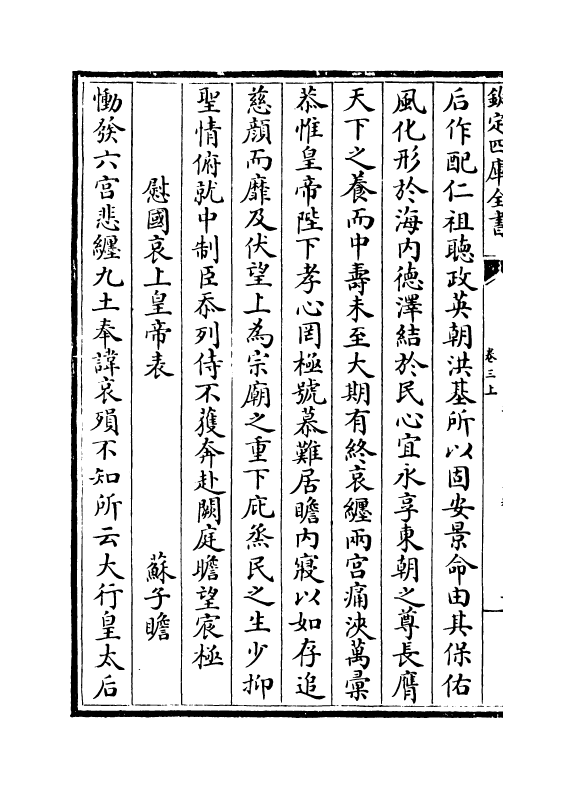 欽定四庫全書
卷三上
后作配仁祖聽政英朝洪基所以固安景命由其保佑
風化形於海内徳澤結於民心宜永享東朝之尊長膺
天下之養而中壽未至大期有終哀纏兩宫痛浹萬彚
恭惟皇帝陛下孝心罔極號慕難居瞻内寢以如存追
慈顔而靡及伏望上為宗廟之重下庇烝民之生少抑
聖情俯就中制臣忝列侍不獲奔赴闕庭瞻望宸極
慰國哀上皇帝表
蘇子瞻
慟發六宫悲纏九土奉諱哀殞不知所云大行皇太后